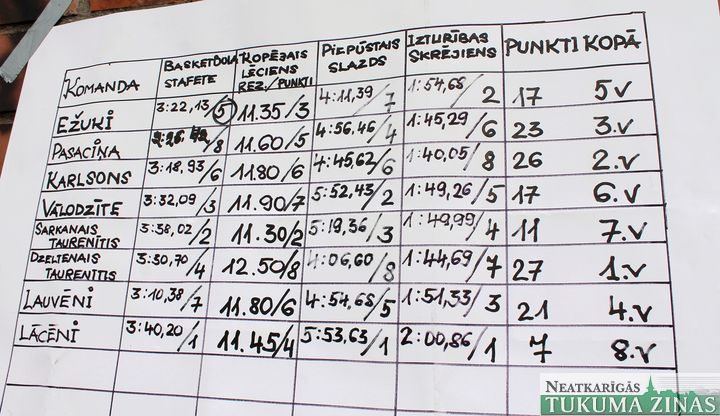 KOMANDA BASKETBOLA STAFETE KOPĒJAIS LĒCIENS REZ./PUNKTI PIEPŪSTAIS SLAZDS IZTURĪBAS SKRĒJIENS PUNKTI KOPĀ
EŽUKI 3:22,13/5 11.35/3 4:11,39/7 1:54,68/2 17 5.v
PASACIŅA /8 11.60/5 4:56,46/4 1:45,29/6 23 3.v
KARLSONS 3:18,93/6 11.80/6 4:45,62/6 1:40,05/8 26 2.v
VĀLODZĪTE 3:32,09/3 11.90/7 5:52,43/2 1:49,26/5 17 6.v
SARKANAIS TAURENĪTIS 3:38,02/2 11.30/2 5:19,36/3 1:49,99/4 11 7.v
DZELTENAIS TAURENĪTIS 3:30,70/4 12.50/8 4:06,60/8 1:44,69/7 27 1.v
LAUVĒNI 3:10,38/7 11.80/6 4:54,68/5 1:51,33/3 21 4.v
LĀCĒNI 3:40,20/1 11.45/4 5:53,63/1 2:00,86/1 7 8.v
NEATKARĪGĀS
TUKUMA ZIŅAS